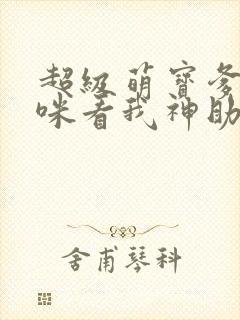 超级萌宝爹
咪看我神助
舍甫琴科